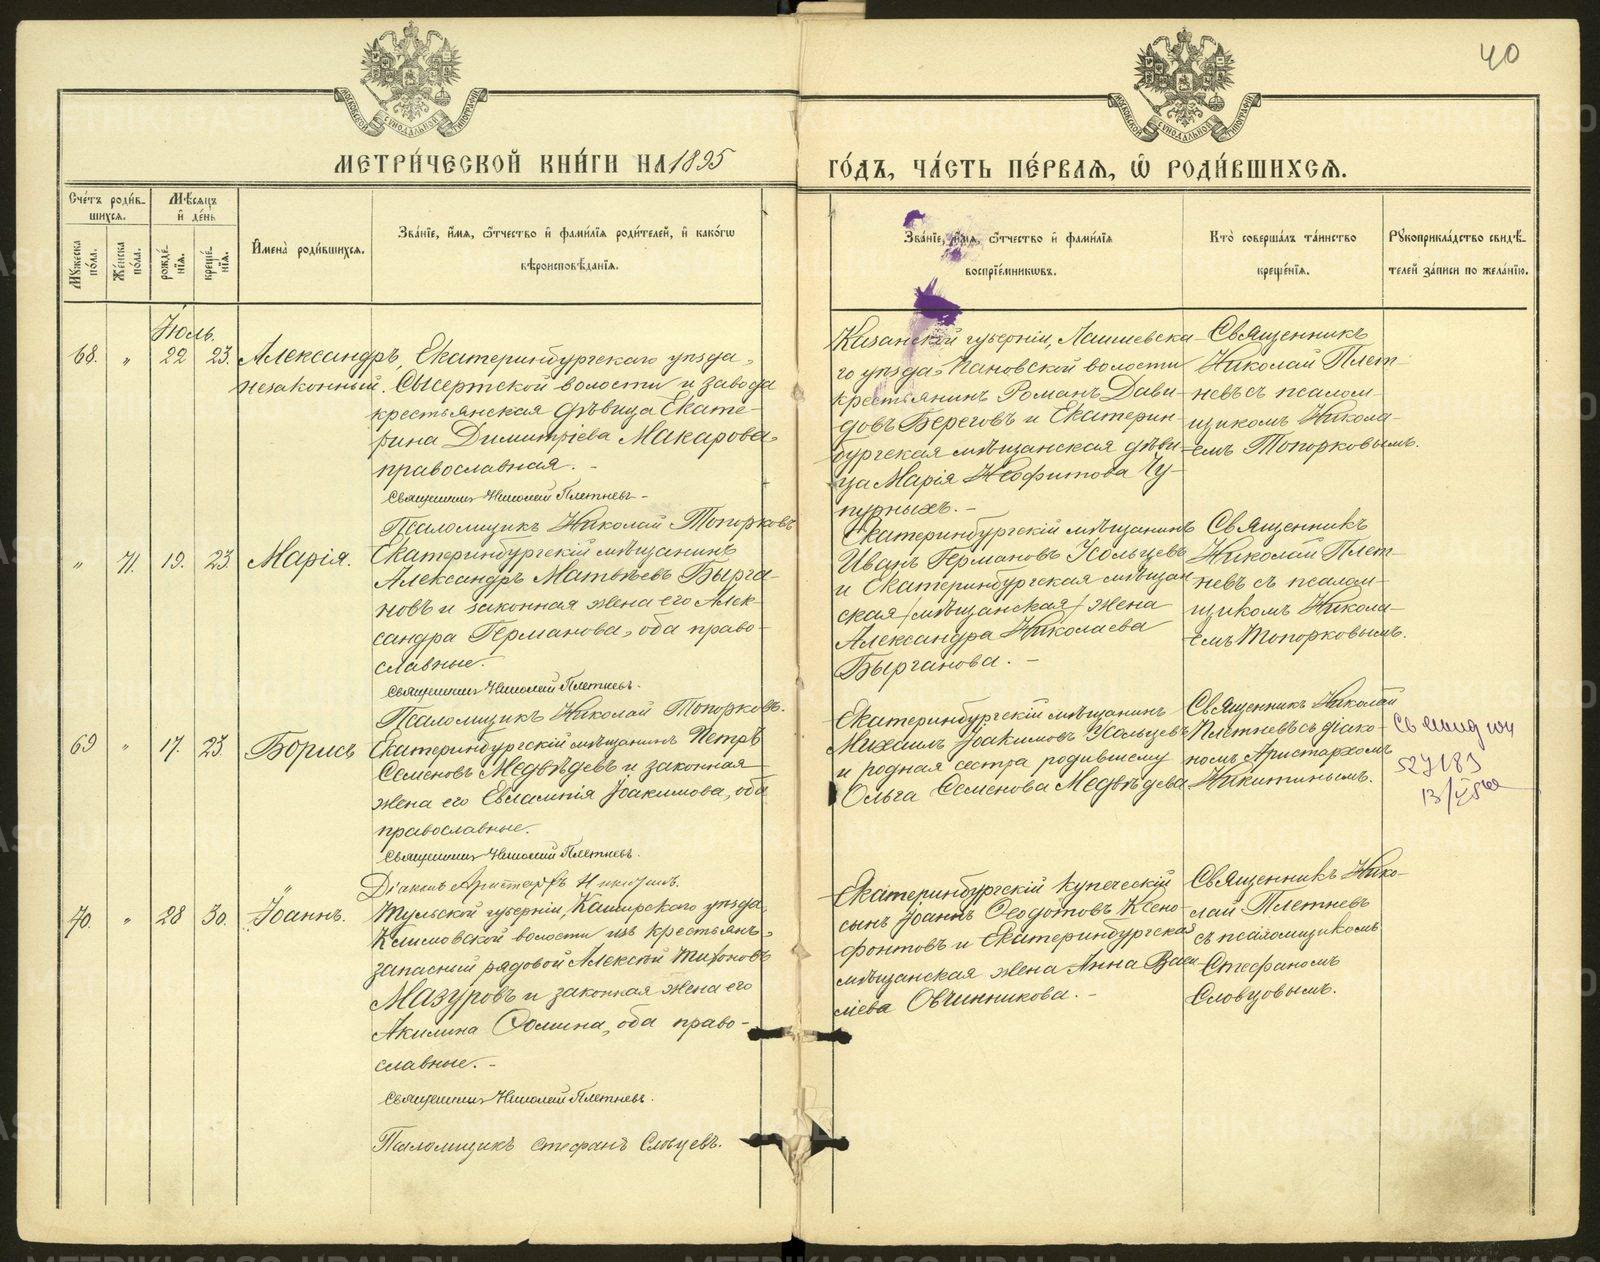 40
МОСКОВСКОЙ СѴНОДАЛЬНОЙ ТИПОГРАФІИ
МОСКОВСКОЙ СѴНОДАЛЬНОЙ ТИПОГРАФІИ
МЕТРИ́ЧЕСКОЙ КНИ́ГИ НА 1895
ГО́ДЪ, ЧА́СТЬ ПЕ́РВАѦ, Ѡ҆ РОДИ́ВШИХСѦ.
Сче́тъ роди́в-
шихсѧ.
Мꙋ́жеска
по́ла.
Же́нска
по́ла.
Мѣ́сѧцъ
и҆ де́нь
рожде́-
нїѧ.
креще́-
нїѧ.
И҆мена̀ роди́вшихсѧ.
Зва́нїе, и҆́мѧ, ѻ҆́тчество и҆ фами́лїѧ роди́телей, и҆ како́гѡ
вѣроисповѣ́данїѧ.
Зва́нїе, и҆́мѧ, ѻ҆́тчество и҆ фами́лїѧ
воспрїе́мникѡвъ.
Кто̀ соверша́лъ та́инство
креще́нїѧ.
Рꙋкоприкла́дство свидѣ́-
телей за́писи по жела́нїю.
Іюль.
68. „ 22 23. Александръ,
незаконный.
Екатеринбургскаго уѣзда,
Сысертской волости и завода
крестьянская дѣвица Екате-
рина Димитріева Макарова,
православная. -
Священникъ Николай Плетневъ -
Псаломщикъ Николай Топорковъ
Казанской губерніи, Лаишевска-
го уѣзда, Пановской волости
крестьянинъ Романъ Дави-
довъ Береговъ и Екатерин-
бургская мѣщанская дѣви-
ца Марія Неофитова Чу-
пурныхъ. -
Священникъ
Николай Плет-
невъ съ псалом-
щикомъ Никола-
емъ Топорковымъ.
„ 71. 19. 23 Марія.
Екатеринбургскій мѣщанинъ
Александръ Матвѣевъ Бырга-
новъ и законная жена его Алек-
сандра Германова, оба право-
славные.
Священникъ Николай Плетневъ.
Псаломщикъ Николай Топорковъ.
Екатеринбургскій мѣщанинъ
Иванъ Германовъ Усольцевъ
и Екатеринбургская мѣщан-
ская /мѣщанская/ жена
Александра Николаева
Бырганова. -
Священникъ
Николай Плет-
невъ съ псалом-
щикомъ Никола-
емъ Топорковымъ.
69 „ 17. 23. Борисъ
Екатеринбургскій мѣщанинъ Петръ
Семеновъ Медвѣдевъ и законная
жена его Евлампія Іоакимова, оба
православные.
Священникъ Николай Плетневъ.
Діаконъ Аристархъ Никитинъ.
Екатеринбургскій мѣщанинъ
Михаилъ Іоакимовъ Усольцевъ
и родная сестра родившему
Ольга Семенова Медвѣдева
Священникъ Николай
Плетневъ съ діако-
номъ Аристархомъ
Никитинымъ.
527183
70. „ 28 30. Іоаннъ.
Тульской губерніи, Каширскаго уѣзда,
Климовской волости изъ крестьянъ,
запасный рядовой Алексѣй Тихоновъ
Мазуровъ и законная жена его
Акилина Ѳомина, оба право-
славные. -
Священникъ Николай Плетневъ.
Псаломщикъ Стефанъ Словцевъ.
Екатеринбургскій купеческій
сынъ Іоаннъ Ѳеодотовъ Ксено-
фонтовъ и Екатеринбургская
мѣщанская жена Анна Васи-
ліева Овчинникова. -
Священникъ Нико-
лай Плетневъ
съ псаломщикомъ
Стефаномъ
Словцовымъ.